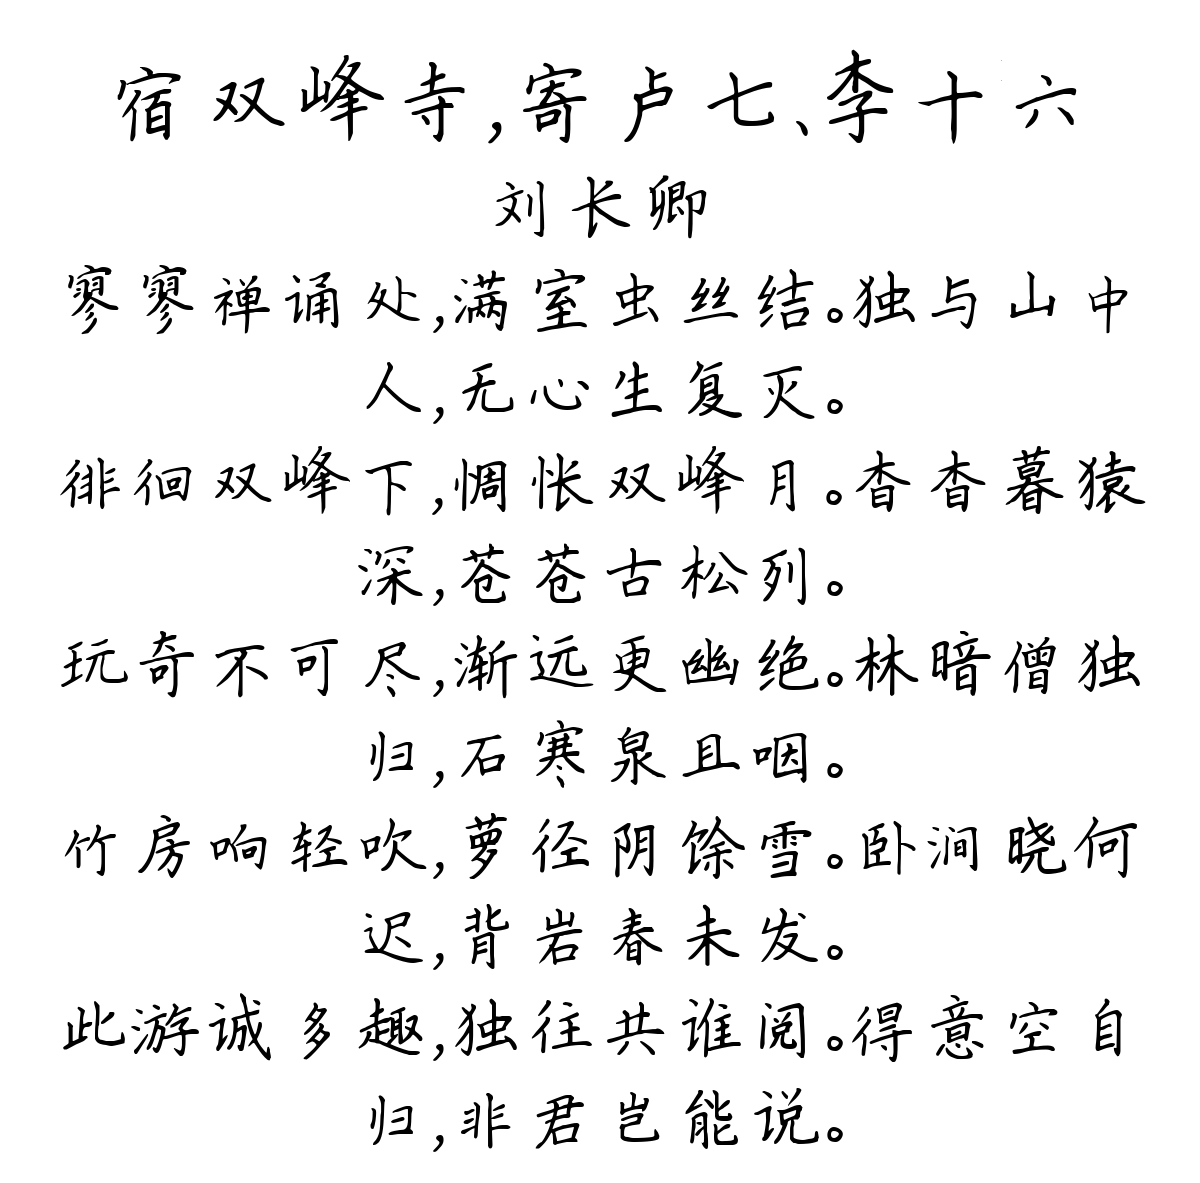 宿双峰寺,寄卢七、李十六
刘长卿
寥寥禅诵处,满室虫丝结。独与山中
人,无心生复灭。
徘徊双峰下,惆怅双峰月。杳杳暮猿
深,苍苍古松列。
玩奇不可尽,渐远更幽绝。林暗僧独
归,石寒泉且咽。
竹房响轻吹,萝径阴馀雪。卧涧晓何
迟,背岩春未发。
此游诚多趣,独往共谁阅。得意空自
归,非君岂能说。